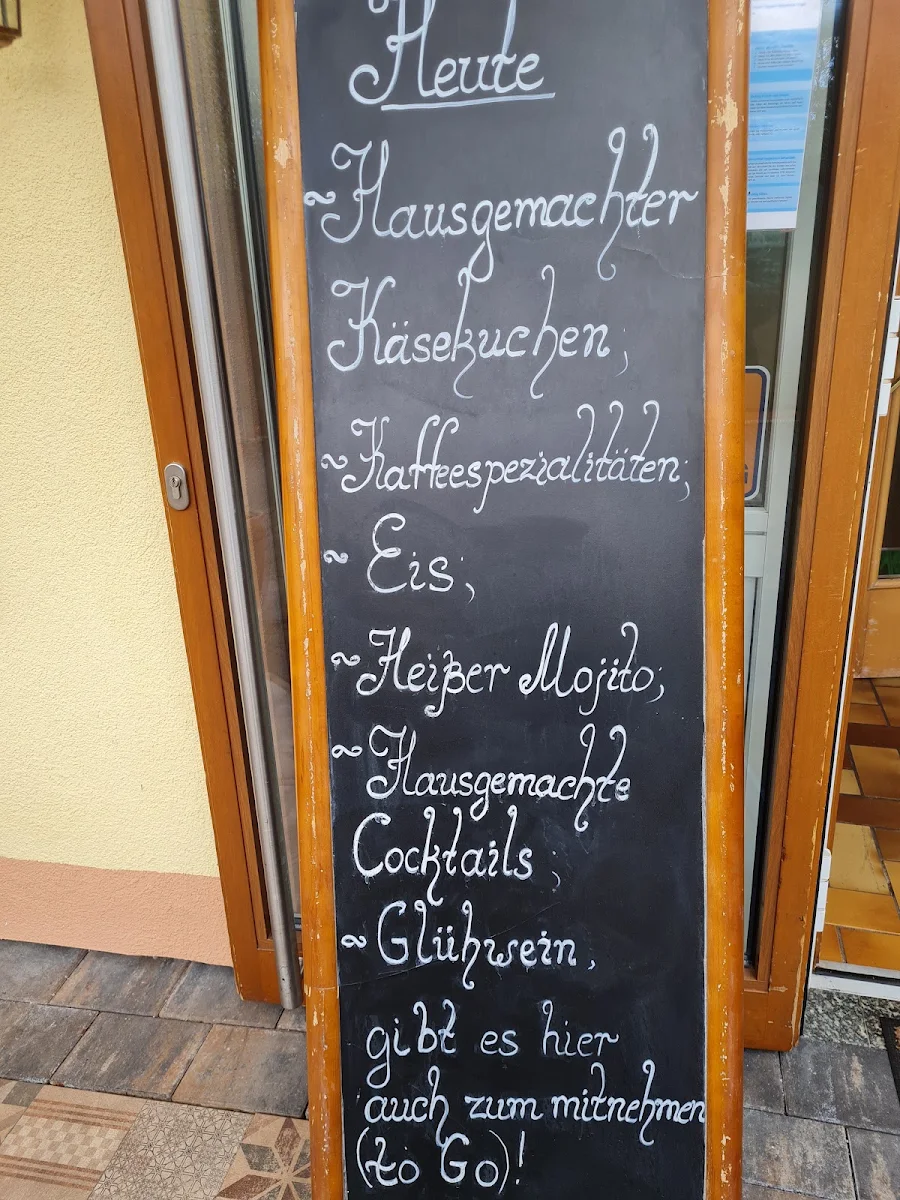 Heute
~Hausgemachter
Käsekuchen;
~Kaffeespezialitäten;
~ Eis;
~Heißer Mojito;
~Hausgemachte
Cocktails;
~Glühwein,
gibt es hier
auch zum mitnehmen
(to Go)!